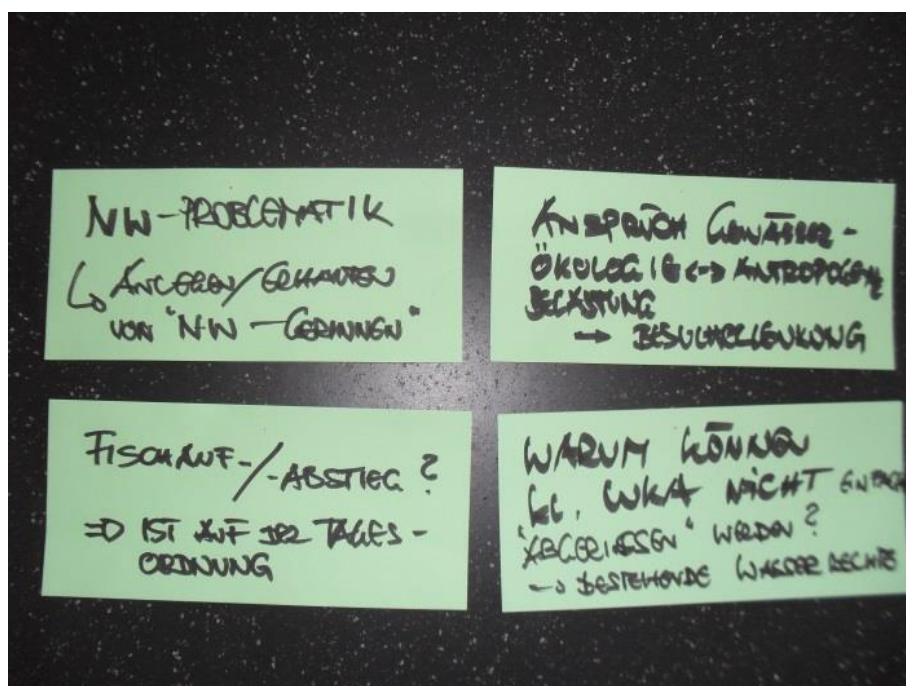 NW-PROBLEMATIK
↳ ANLEGEN/ERHALTEN
VON "NW-GERINNEN"
ANSPRUCH GEWÄSSER-
ÖKOLOGIE <-> ANTROPOGENE
BELASTUNG
→ BESUCHERLENKUNG
FISCHAUF-/-ABSTIEG?
=> IST AUF DER TAGES-
ORDNUNG
WARUM KÖNNEN
KL. WKA NICHT EINFACH
"ABGERISSEN" WERDEN?
→ BESTEHENDE WASSERRECHTE